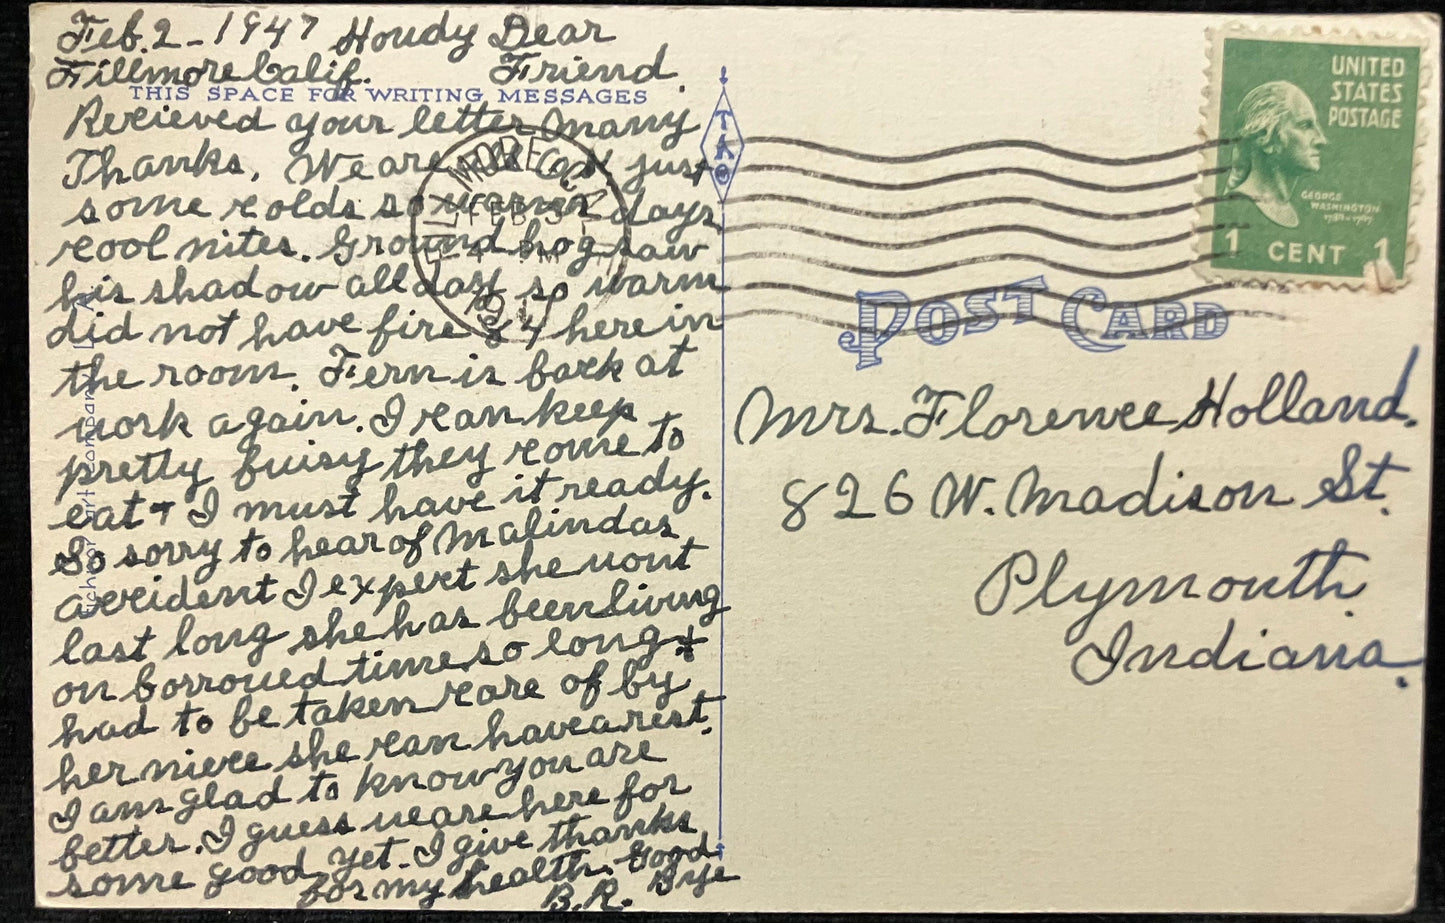 Feb. 2 - 1947 Howdy Dear
Fillmore Calif. Friend
THIS SPACE FOR WRITING MESSAGES
Recieved your letter many
Thanks, We are all O.K. just
some colds so warm days
cool nites. Ground hog saw
his shadow all day so warm
did not have fire here in
the room. Fern is back at
work again. I can keep
pretty buisy they come to
eat + I must have it ready.
So sorry to hear of Malindas
accident I expect she wont
last long she has been living
on borrowed time so long +
had to be taken care of by
her niece she can have a rest.
I am glad to know you are
better. I guess we are here for
some good yet - I give thanks
for my health. Good
B.R. Bye
FILLMORE CALIF.
FEB 3
4 PM
1947
UNITED
STATES
POSTAGE
GEORGE
WASHINGTON
1789-1797
1 CENT 1
POST CARD
Mrs. Florence Holland.
826 W. Madison St.
Plymouth
Indiana.